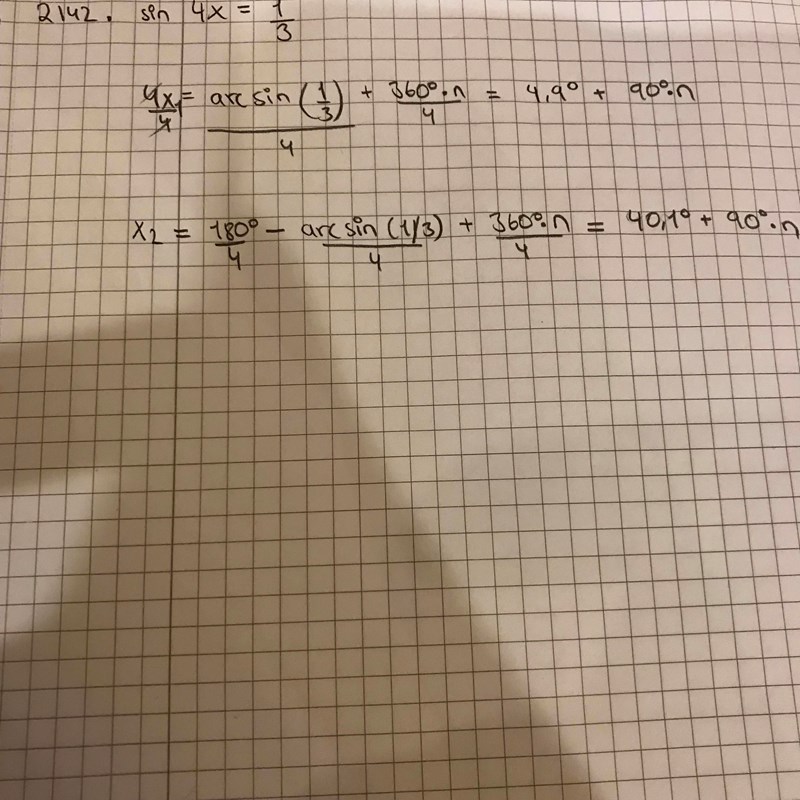 2142. sin 4x = 1/3
4x₁/4 = arcsin(1/3)/4 + 360°·n/4 = 4,9° + 90°·n
x₂ = 180°/4 − arcsin(1/3)/4 + 360°·n/4 = 40,1° + 90°·n